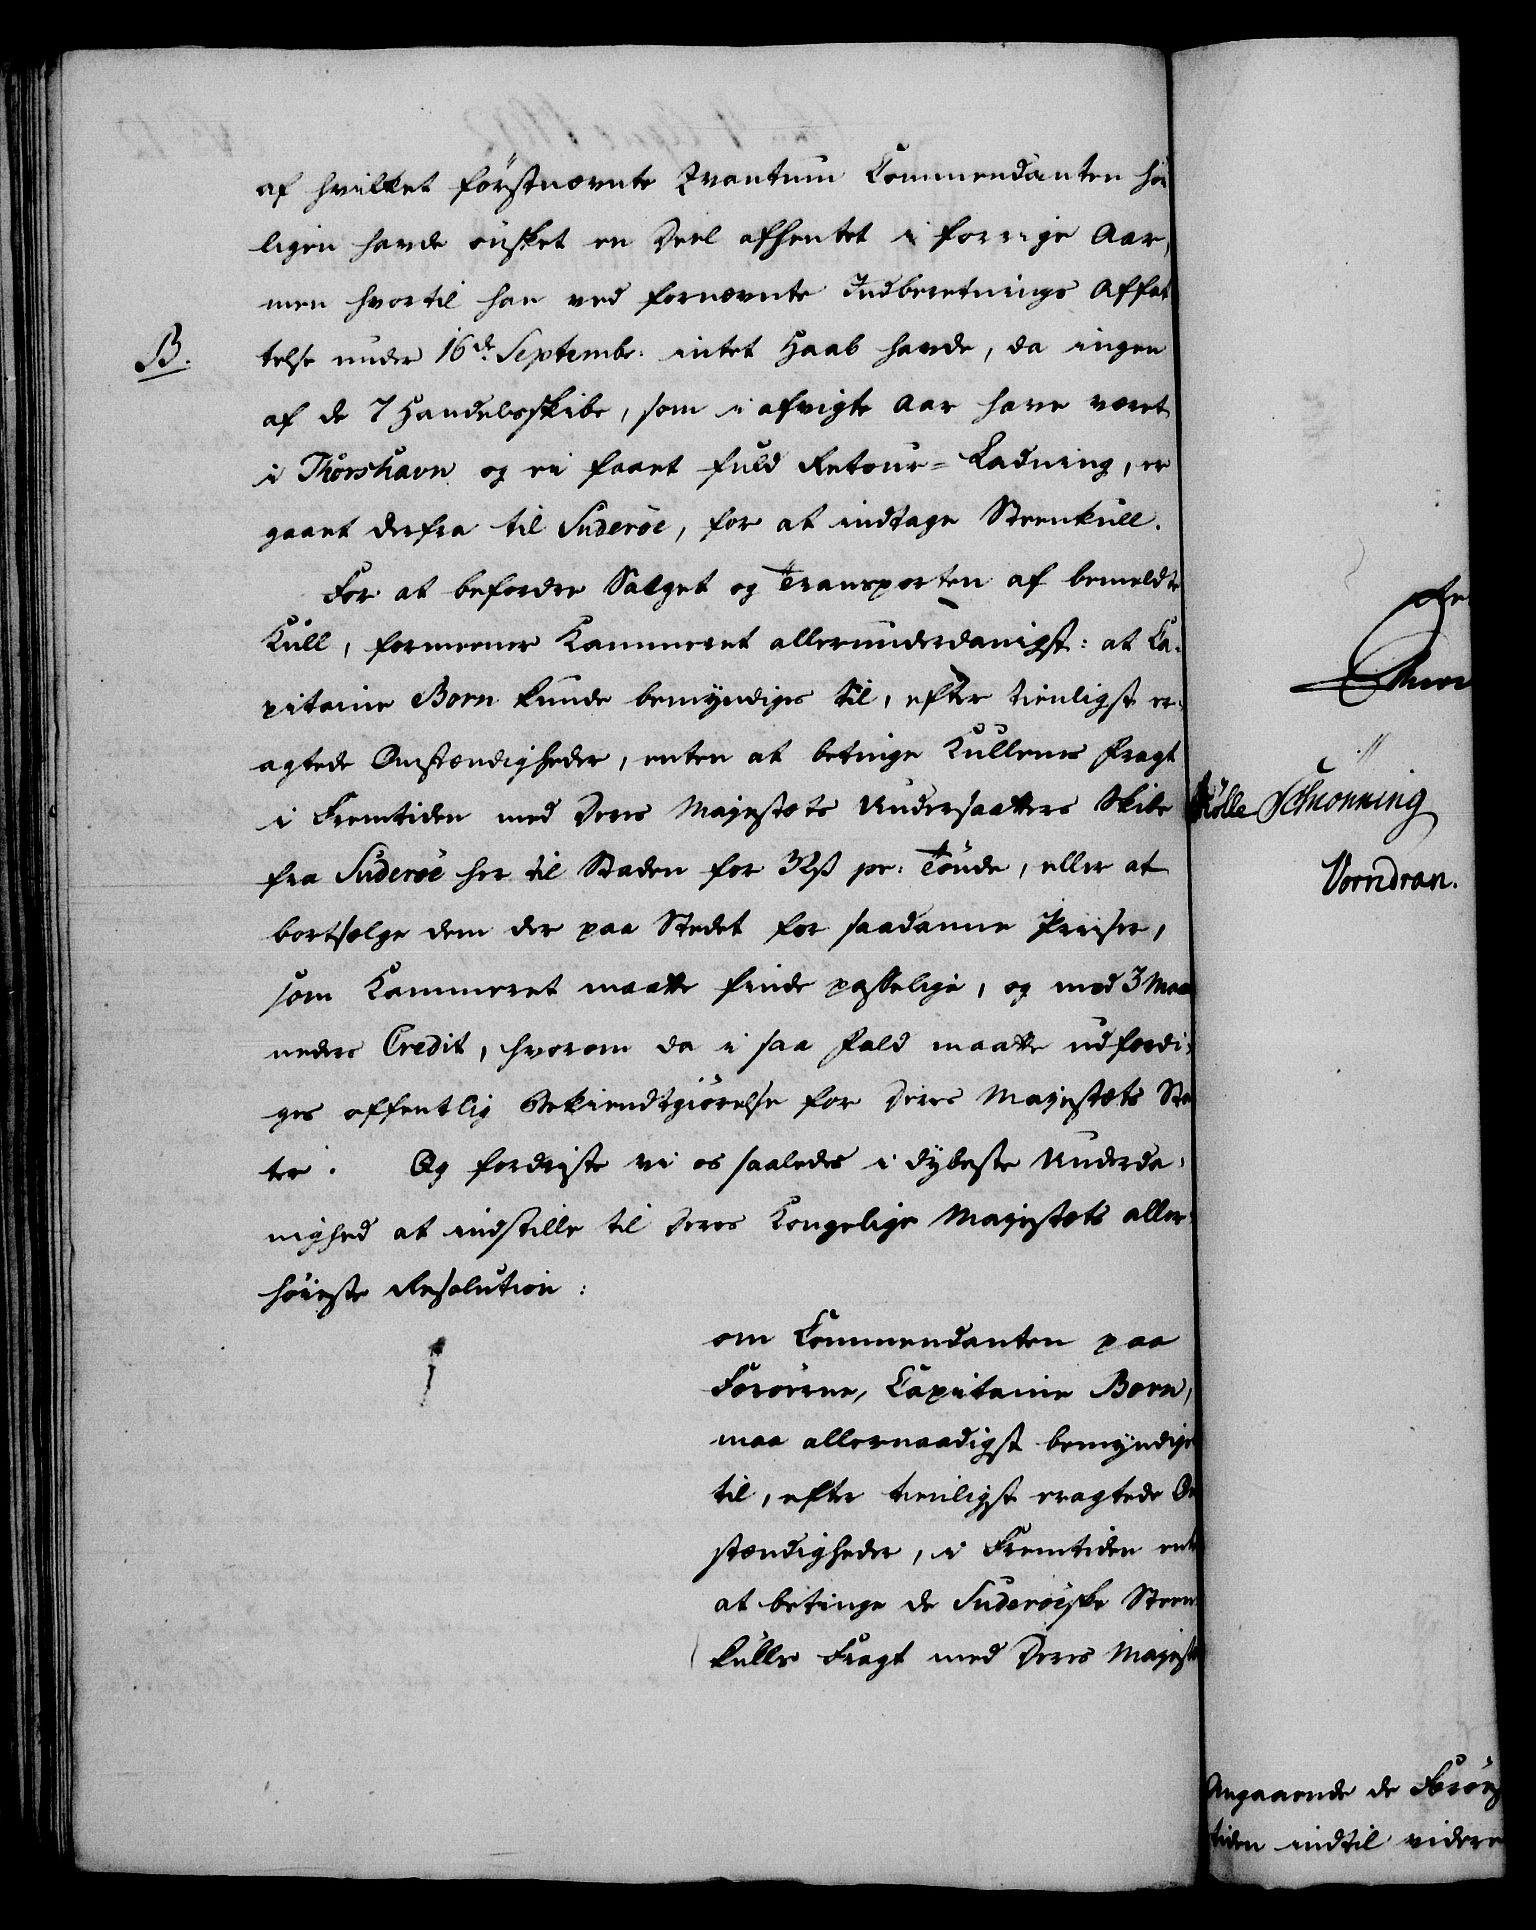 af hvilket førstnævnte Qvantum Commendanten høi
ligen havde ønsket en Deel afhentet i forrige Aar,
men hvortil han ved fornævnte Indberetnings Affat
B. telse under 16de Septembr: intet Haab havde, da ingen
af de 7 Handelsskibe, som i afvigte Aar have været
i Thorshavn og ei faaet fuld Retour-Ladning, er
gaaet derfra til Suderöe, for at indtage Steenkull.
For at befordre Salget og Transporten af bemeldte
Kull, formeener Kammeret allerunderdanigst: at Ca-
pitaine Born kunde bemyndiges til, efter tienligst er-
agtede Omstændigheder, enten at betinge Kullenes Fragt
i Fremtiden med Deres Majestæts Undersaatters Skibe
fra Suderöe her til Staden for 32 ß pr: Tönde, eller at
bortsælge dem der paa Stedet for saadanne Priiser,
som Kammeret maatte finde passelige, og med 3 Maa
neders Credit, hvorom da i saa Fald maatte udferdi-
ges offentlig Bekiendtgiörelse for Deres Majestæts Sta
ter. Og fordriste vi os saaledes i dybeste Underda-
nighed at indstille til Deres Kongelige Majestæts aller-
höieste Resolution:
om Commendanten paa
Færöerne, Capitaine Born,
maa allernaadigst bemyndige
til, efter tienligst eragtede Om
stændigheder, i Fremtiden ent
at betinge de Suderöeske Steen
kulls Fragt med Deres Majest
Schiönning
Vorndran.
Angaaende de Færöe
tiden indtil videre